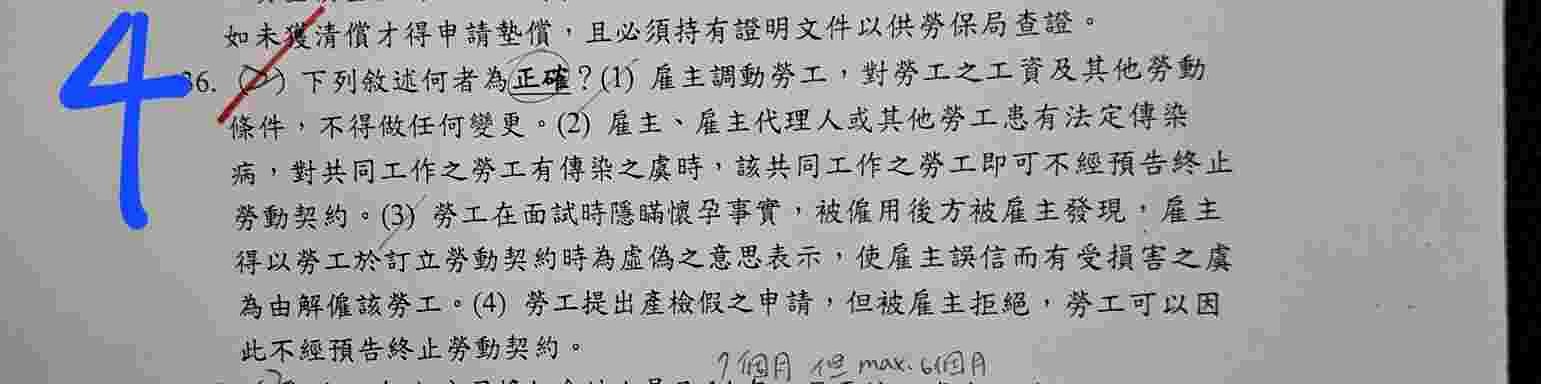 如未獲清償才得申請墊償，且必須持有證明文件以供勞保局查證。
4
36. (2) 下列敘述何者為正確？(1) 雇主調動勞工，對勞工之工資及其他勞動
條件，不得做任何變更。(2) 雇主、雇主代理人或其他勞工患有法定傳染
病，對共同工作之勞工有傳染之虞時，該共同工作之勞工即可不經預告終止
勞動契約。(3) 勞工在面試時隱瞞懷孕事實，被僱用後方被雇主發現，雇主
得以勞工於訂立勞動契約時為虛偽之意思表示，使雇主誤信而有受損害之虞
為由解僱該勞工。(4) 勞工提出產檢假之申請，但被雇主拒絕，勞工可以因
此不經預告終止勞動契約。
個月 但 max. 6個月